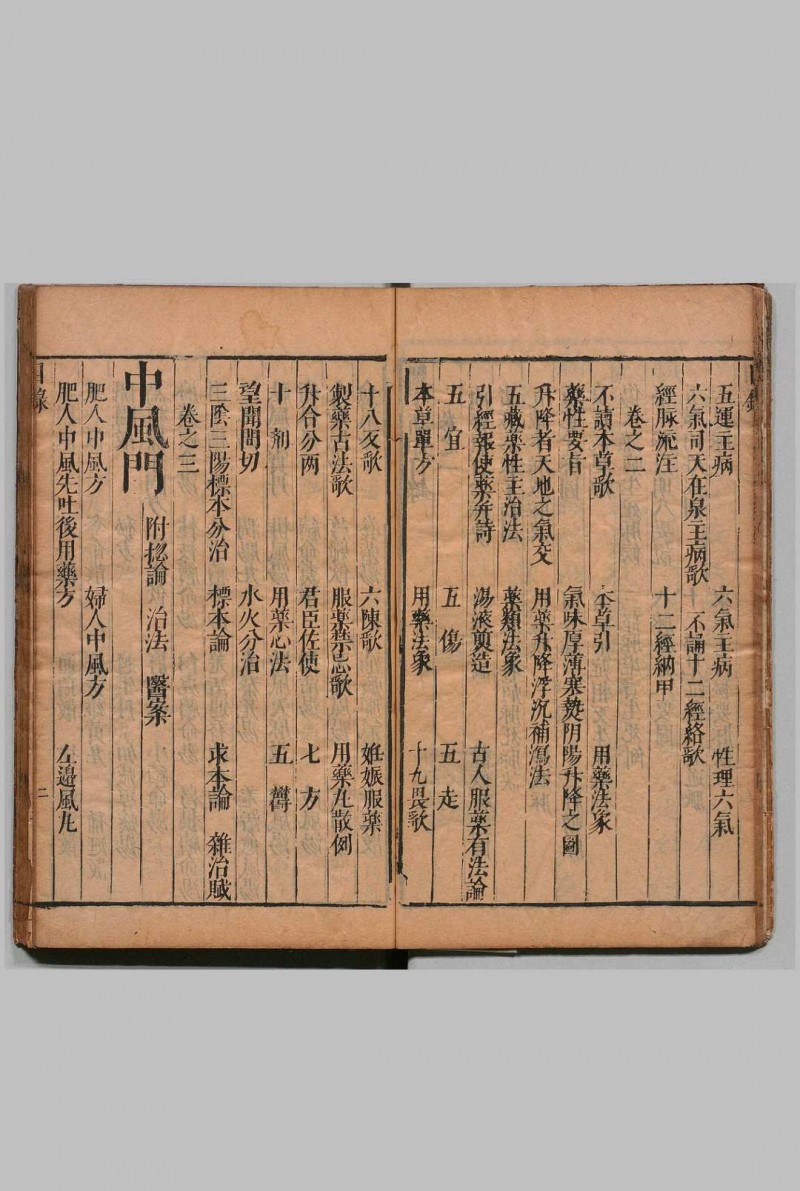 五運主病 六氣主病 性理六氣
六氣司天在泉主病歌 不誦十二經絡歌
經脉流注 十二經納甲
卷之二
不讀本草歌 本草引 用藥法象
藥性要旨 氣味厚薄寒熱阴陽升降之圖
升降者天地之氣交 用藥升降浮沉補瀉法
五臟藥性主治法 藥類法象
引經報使藥并詩 湯液煎造 古人服藥有法論
五宜 五傷 五走
本草單方 用藥法象 十九畏歌
十八反歌 六陳歌 姙娠服藥
製藥古法歌 服藥禁忌歌 用藥丸散例
升合分两 君臣佐使 七方
十劑 用藥心法 五欝
望聞問切 水火分治
三陰三陽標本分治 標本論 求本論 雜治賦
卷之三
中風門 附揔論 治法 醫案
肥人中風方 婦人中風方
肥人中風先吐後用藥方 左邉風丸
目錄 二